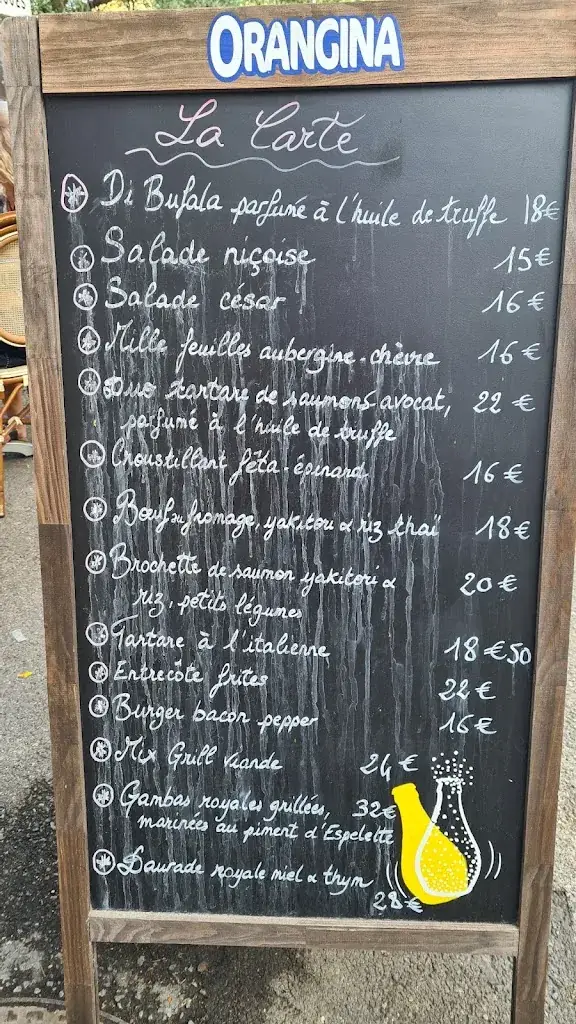 ORANGINA
La Carte
Di Bufala parfumé à l'huile de truffe 18€
Salade niçoise 15€
Salade césar 16€
Mille feuilles aubergine-chèvre 16€
Duo tartare de saumons avocat, 22€
parfumé à l'huile de truffe
Croustillant féta-épinard 16€
Bœuf au fromage, yakitori & riz thaï 18€
Brochette de saumon yakitori & 20€
riz, petits légumes
Tartare à l'italienne 18€50
Entrecôte frites 22€
Burger bacon pepper 16€
Mix Grill viande 24€
Gambas royales grillées, 32€
marinées au piment d'Espelette
Daurade royale miel & thym
28€